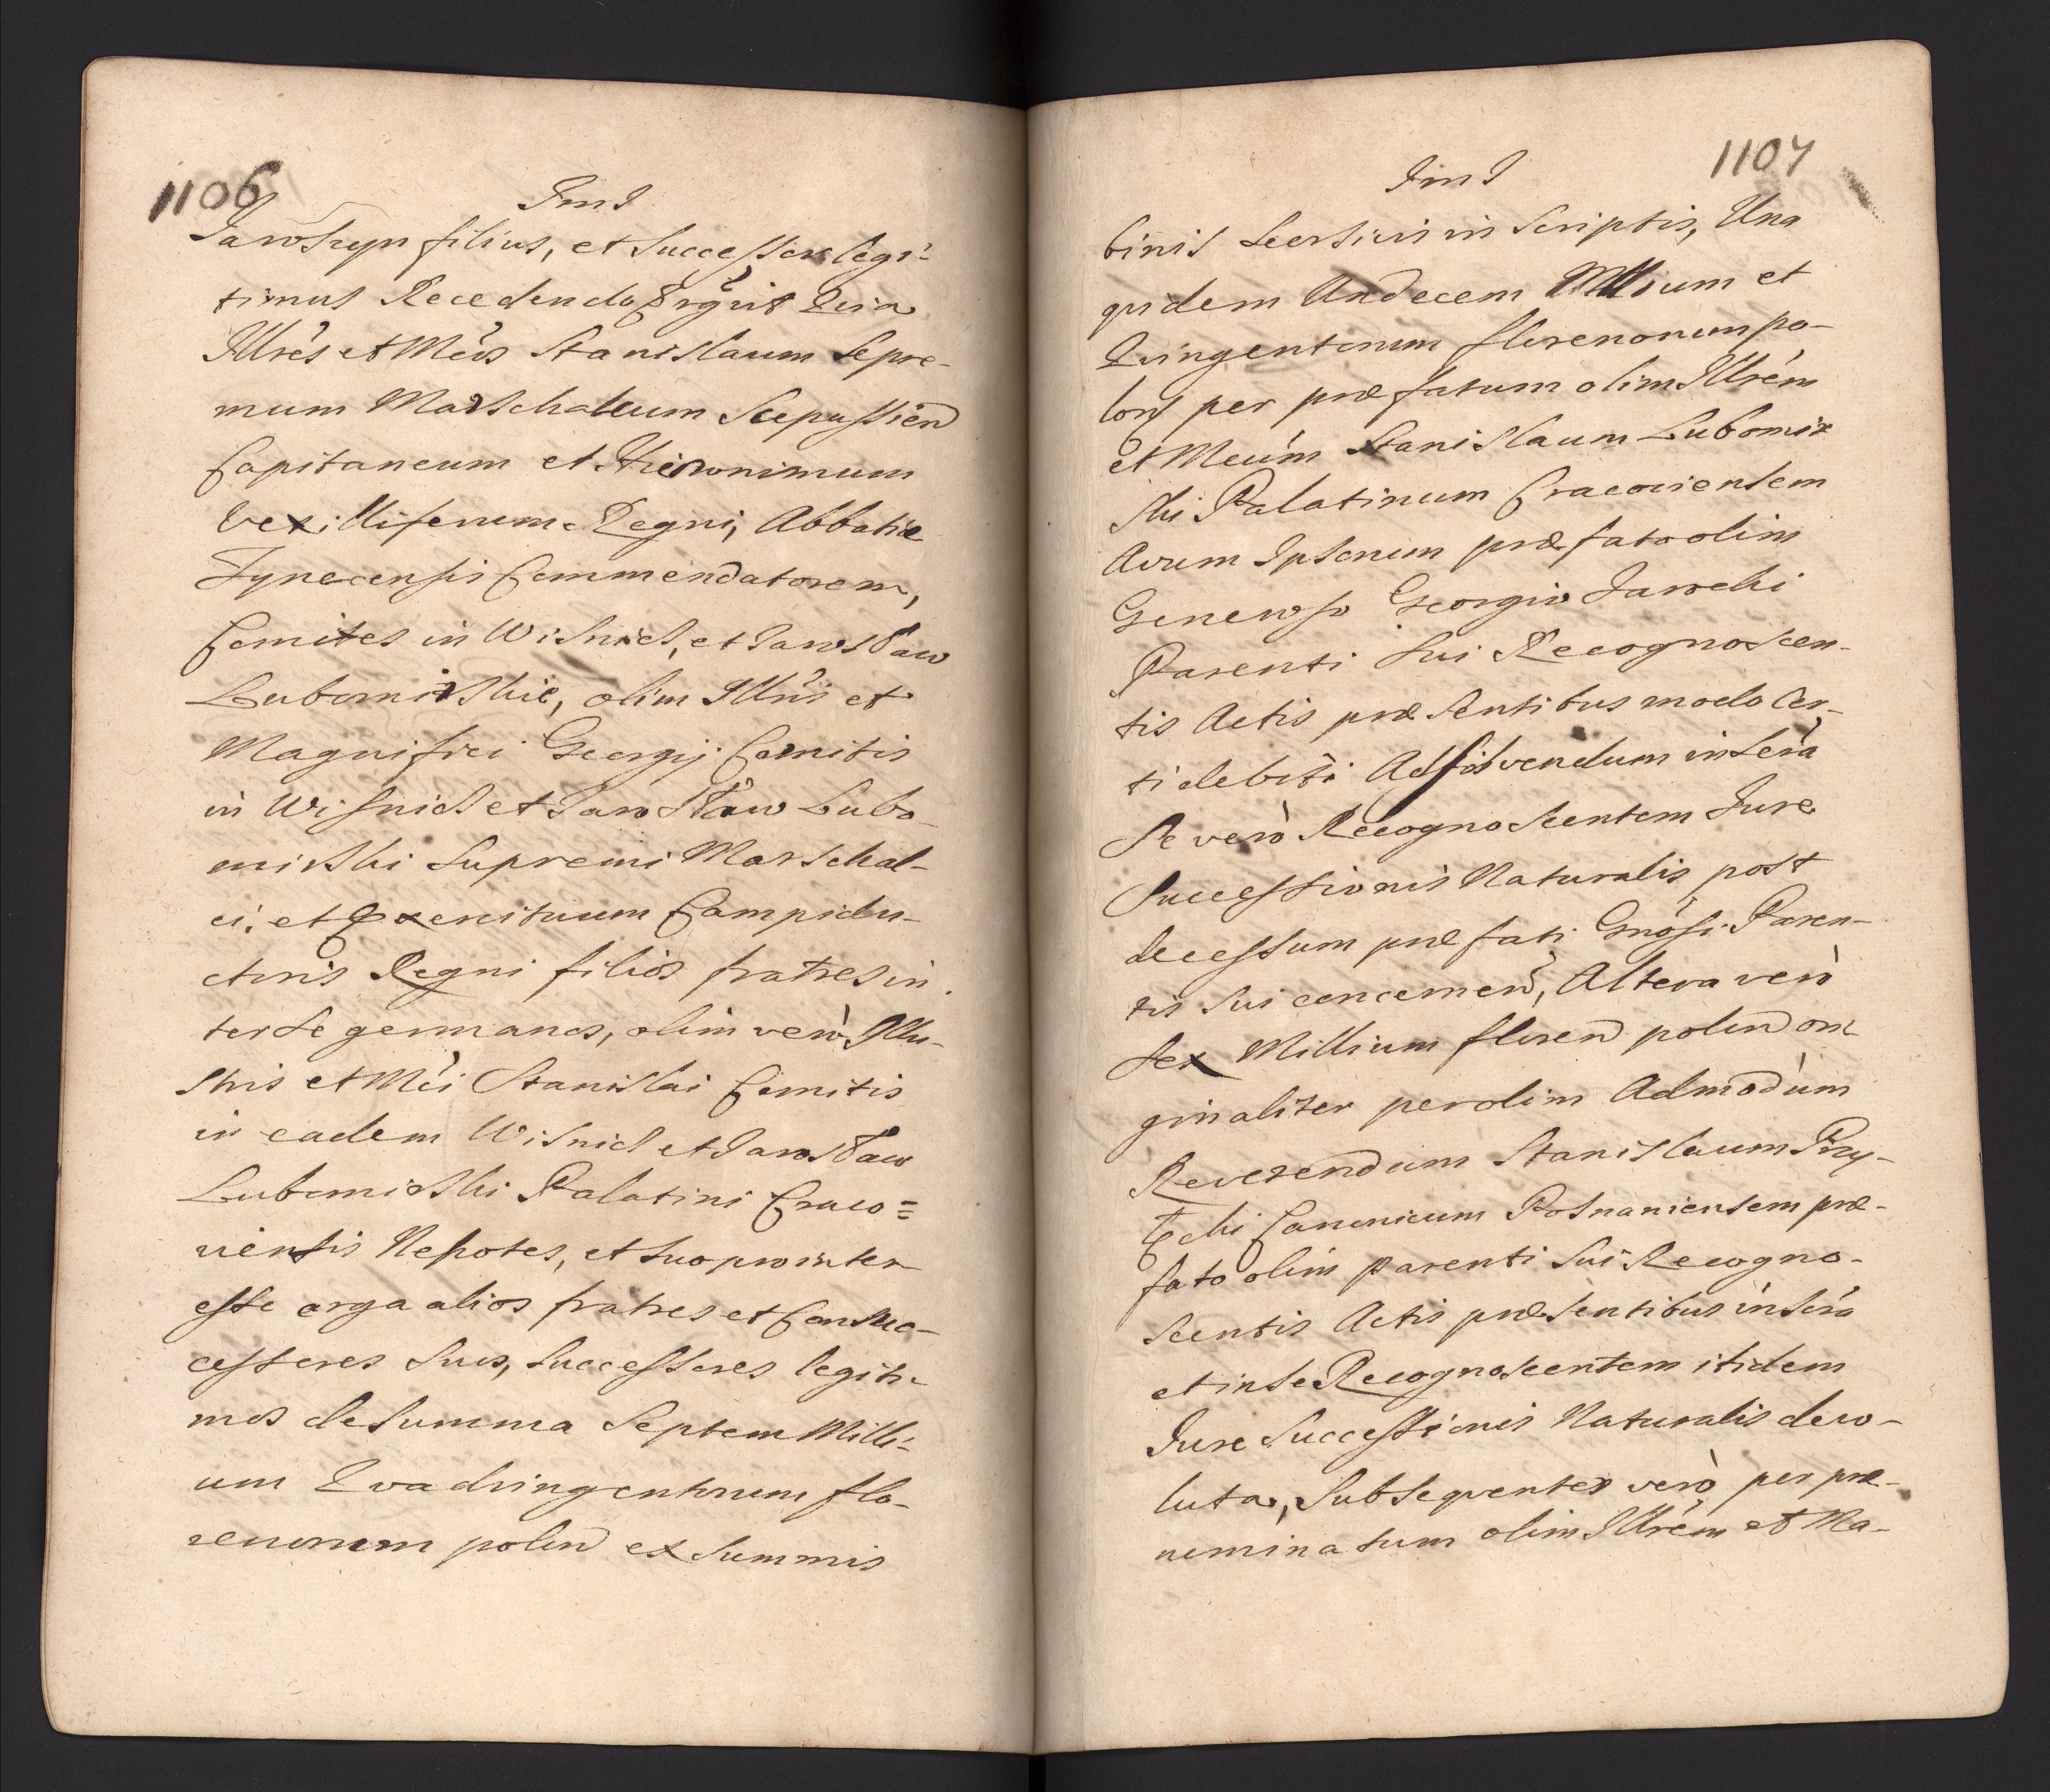 1106
JmJ
Jarosszyn filius, et Successor legi-
timus Recedendo Ergvit Qvia
Illres et Mcos Stanislaum Supre-
mum Marschalcum Scepussien
Capitaneum et Hieronimum
Vexilliferum Regni, Abbatiæ
Tynecensis Commendatorem,
Comites in Wisnicz, et Jarosław
Lubomirskie, olim Illris et
Magnifici Georgij Comitis
in Wisnicz et Jarosław Lubo-
mirski Supremi Marschal-
ci, et Exercituum Campidu-
ctoris Regni filios fratres in
ter se germanos, olim verò Illu-
stris et Mci Stanislai Comitis
in eadem Wisnicz et Jarosław
Lubomirski Palatini Craco=
viensis Nepotes, et suo pro inter
esse erga alios fratres et Consuc-
cessores suos, Successores legiti-
mos de Summa Septem Milli-
um Qvadringentorum flo-
renorum polon ex Summis
1107
JmJ
binis in Scriptis, Una
qvidem Undecem Millium et
Qvingentorum florenorum po-
lon per præfatum olim Illrem
et Mcum Stanislaum Lubomir
ski Palatinum Cracoviensem
Avum Ipsorum præfato olim
Generoso Georgio
Parenti sui Recognoscen-
tis Actis præsentibus modo Cer-
ti debiti Adsolvendum inscra
Se verò Recognoscentem Jure
Successionis Naturalis post
decessum præfati Gnosi Paren-
tis sui concernen, Altera verò
Sex Millium floren polon ori
ginaliter per olim Admodum
Reverendum Stanislaum Przy-
łęcki Canonicum Posnaniensem præ-
fato olim parenti sui Recogno-
scentis Actis præsentibus inscra
et in se Recognoscentem itidem
Jure Successionis Naturalis devo-
luta, Subseqventer verò per præ-
nominatum olim Illrem et Ma-